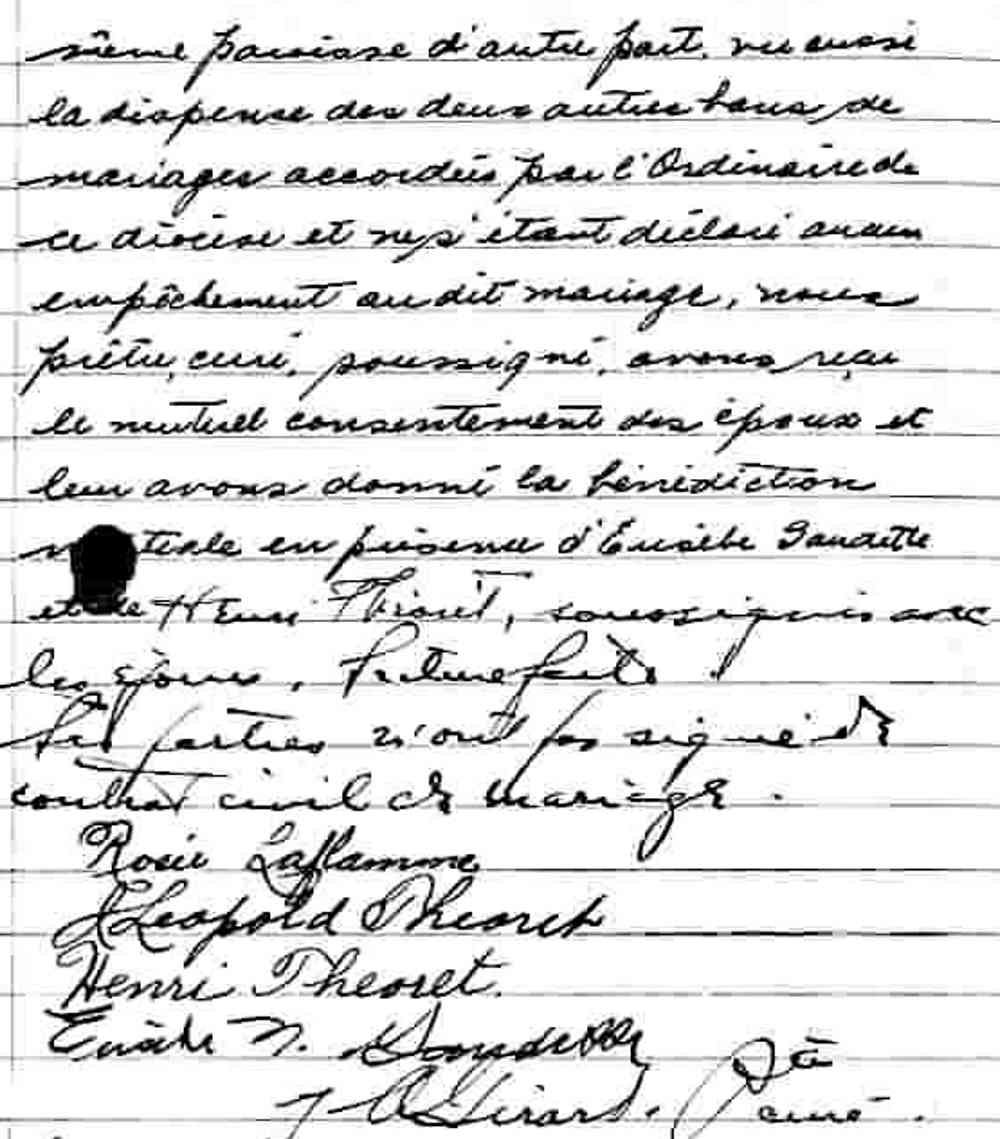 même paroisse d'autre part, vu aussi
la dispense des deux autres bans de
mariages accordées par l'Ordinaire de
ce diocèse et ne s'étant déclaré aucun
empêchement au dit mariage, nous
prêtre, curé, soussigné, avons reçu
le mutuel consentement des époux et
leur avons donné la bénédiction
nuptiale en présence d'Eusèbe Gaudette
et de Henri Théoret, soussignés avec
les époux. Lecture faite.
Les parties n'ont pas signé de
contrat civil de mariage.
Rosie Laflamme
J Leopold Theoret
Henri Theoret.
Eusèbe N. Gaudette
J A Girard. Ptre
curé.